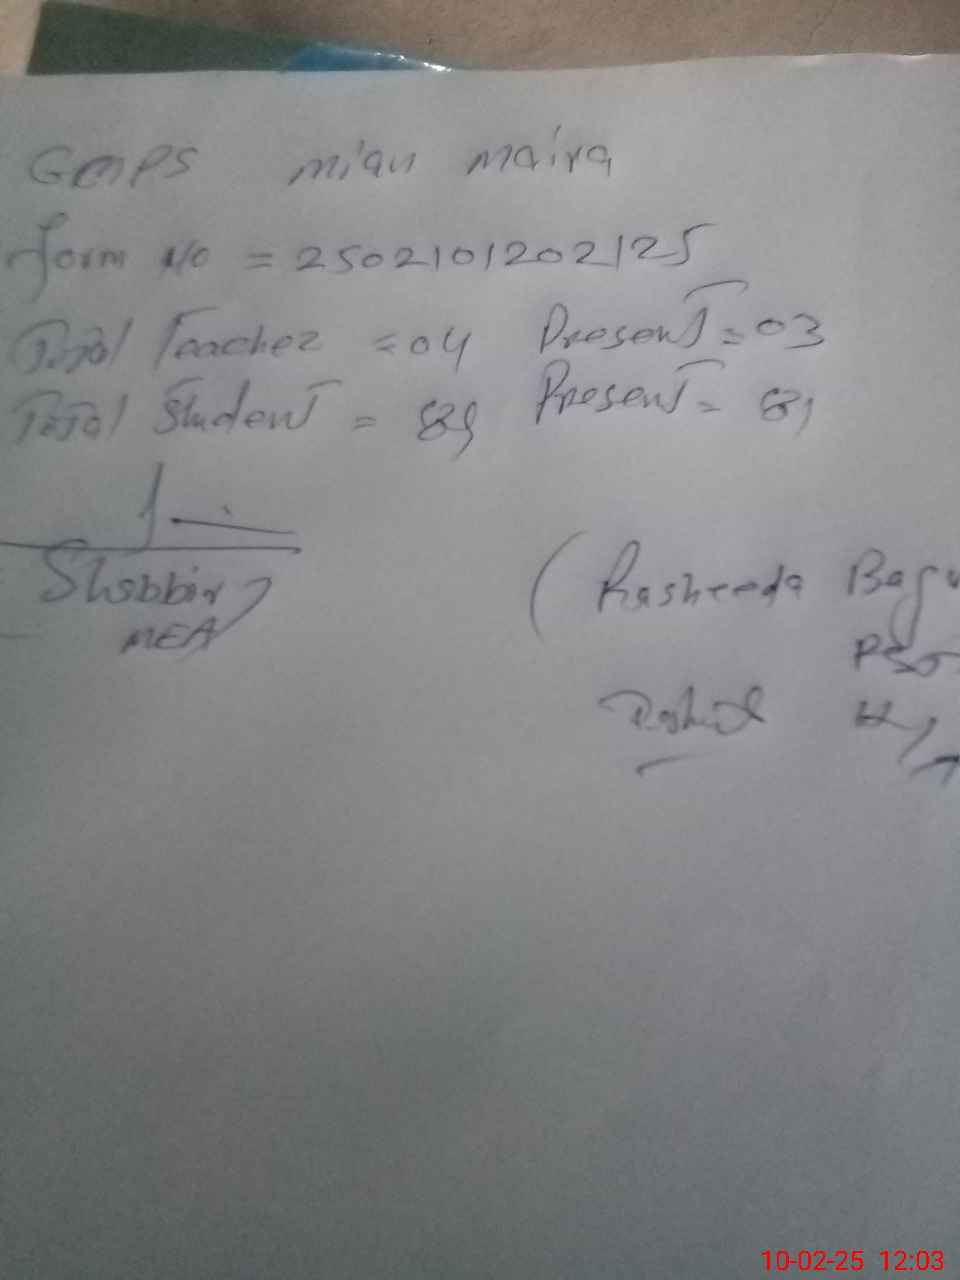 GMPS Mian Maira
Form No = 2502101202125
Total Teacher = 04 Present = 03
Total Student = 89 Present = 81
Shabbir
MEA
(Rasheeda Begu
PS
10-02-25 12:03